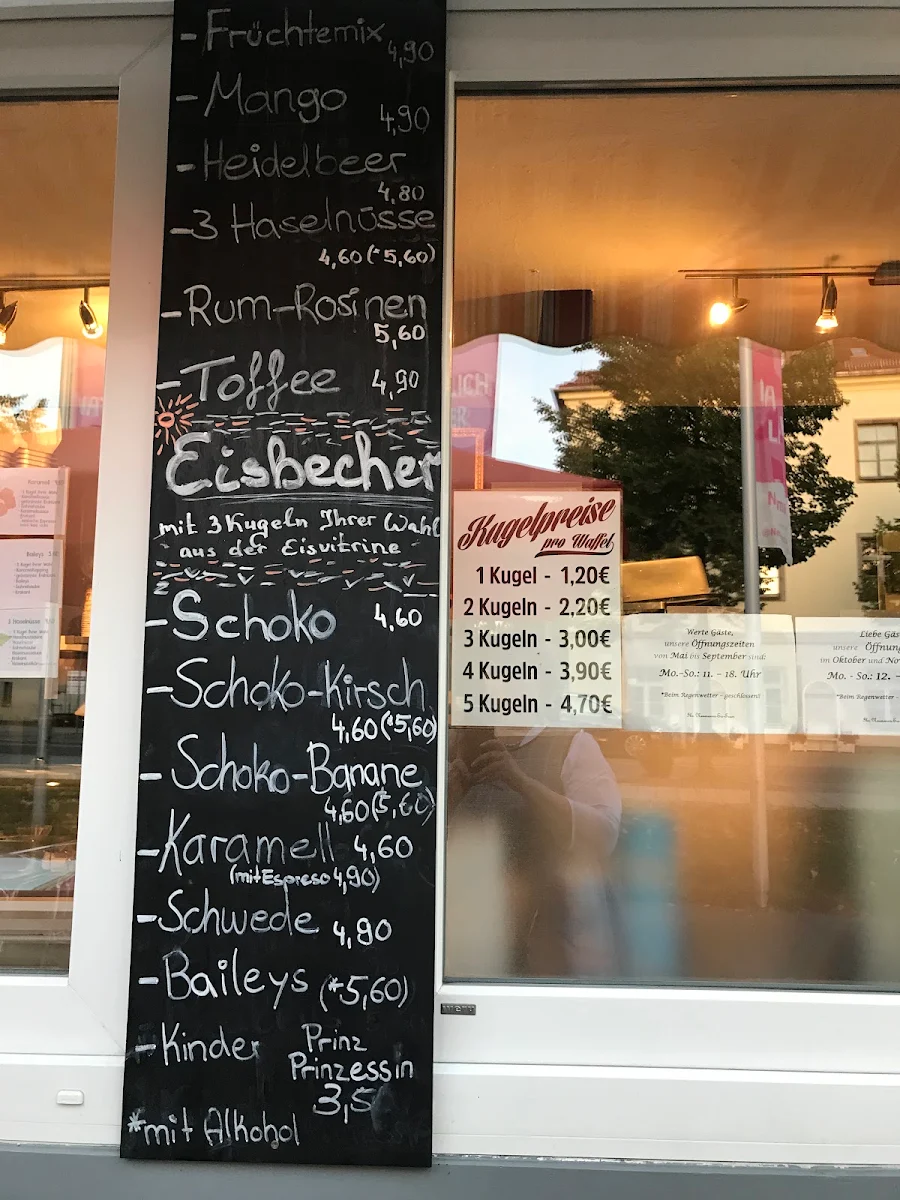 - Früchtemix
4,90
- Mango
4,90
- Heidelbeer
4,80
- 3 Haselnüsse
4,60 (*5,60)
- Rum-Rosinen
5,60
- Toffee 4,90
Eisbecher
mit 3 Kugeln Ihrer Wahl
aus der Eisvitrine
- Schoko 4,60
- Schoko-Kirsch
4,60 (*5,60)
- Schoko-Banane
4,60 (5,60)
- Karamell 4,60
(mit Espreso 4,90)
- Schwede 4,90
- Baileys (*5,60)
- Kinder Prinz
Prinzessin
3,5
*mit Alkohol
Kugelpreise
pro Waffel
1 Kugel - 1,20€
2 Kugeln - 2,20€
3 Kugeln - 3,00€
4 Kugeln - 3,90€
5 Kugeln - 4,70€
Werte Gäste,
unsere Öffnungszeiten
von Mai bis September sind:
Mo.-So.: 11. - 18. Uhr
*Beim Regenwetter - geschlossen!
Liebe Gäs
unsere Öffnung
im Oktober und No
Mo. - So.: 12. -
*Beim Regenwetter -
LICH
Baileys